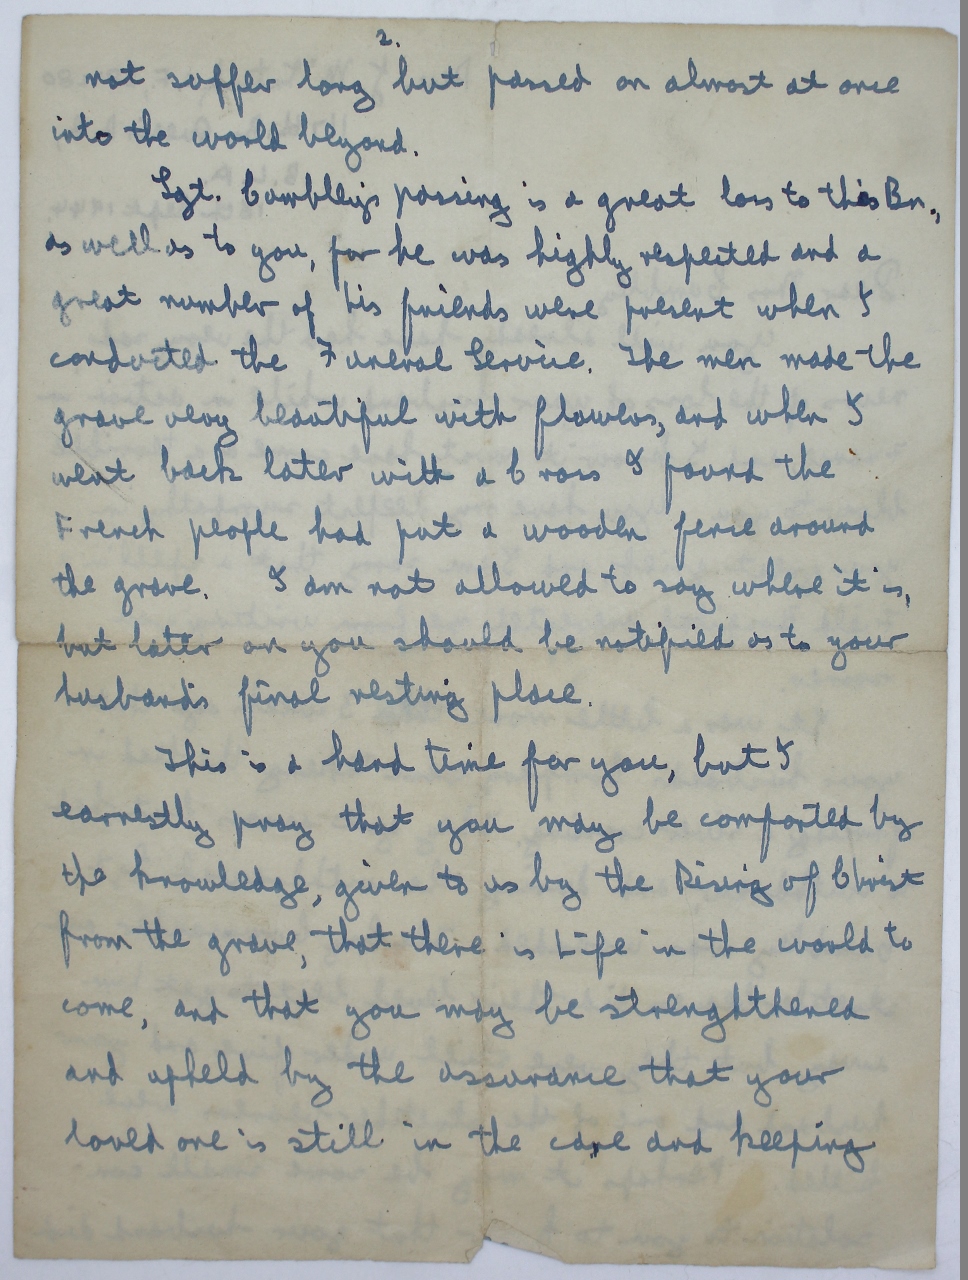 2.
not suffer long but passed on almost at once
into the world beyond.
Sgt. Cumbley's passing is a great loss to this Bn.,
as well as to you, for he was highly respected and a
great number of his friends were present when I
conducted the Funeral Service. The men made the
grave very beautiful with flowers, and when I
went back later with a Cross I found the
French people had put a wooden fence around
the grave. I am not allowed to say where it is,
but latter on you should be notified as to your
husband's final resting place.
This is a hard time for you, but I
earnestly pray that you may be comforted by
the knowledge, given to us by the Rising of Christ
from the grave, that there is Life in the world to
come, and that you may be strenghthened
and upheld by the assurance that your
loved one is still in the care and keeping